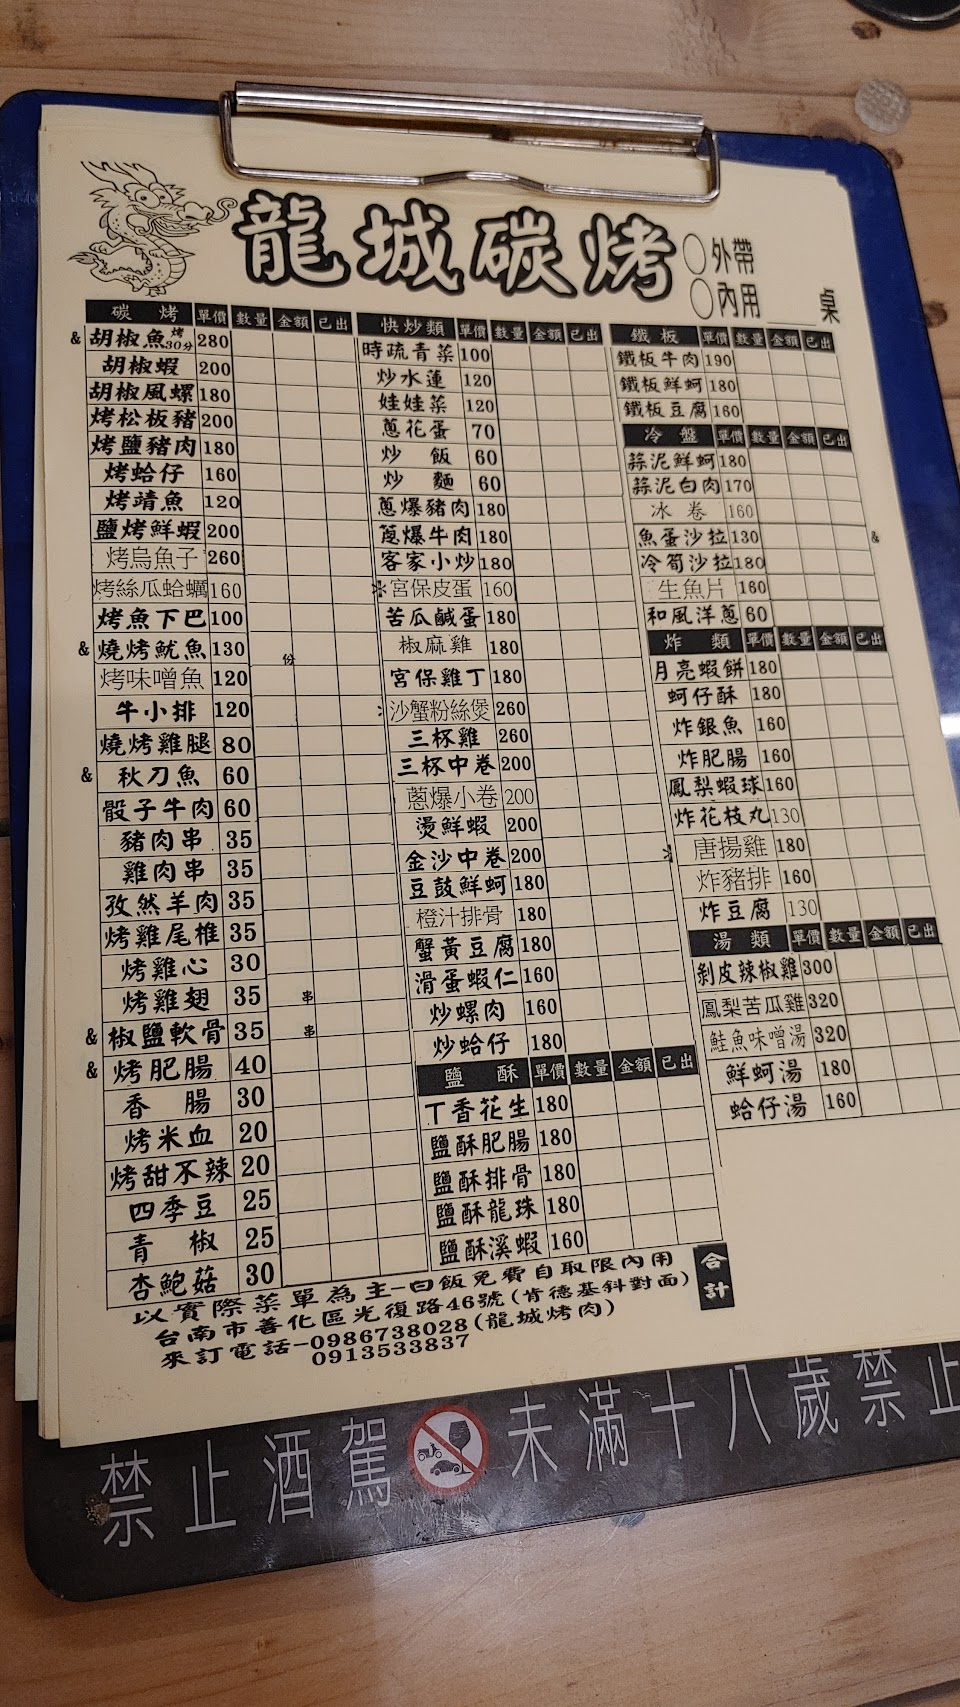 龍城碳烤
○外帶
○內用 桌
碳烤 單價 數量 金額 已出
& 胡椒魚 烤30分 280
胡椒蝦 200
胡椒風螺 180
烤松板豬 200
烤鹽豬肉 180
烤蛤仔 160
烤鯖魚 120
鹽烤鮮蝦 200
烤烏魚子 260
烤絲瓜蛤蠣 160
烤魚下巴 100
& 燒烤魷魚 130 份
烤味噌魚 120
牛小排 120
燒烤雞腿 80
& 秋刀魚 60
骰子牛肉 60
豬肉串 35
雞肉串 35
孜然羊肉 35
烤雞尾椎 35
烤雞心 30
烤雞翅 35 串
& 椒鹽軟骨 35 串
& 烤肥腸 40
香腸 30
烤米血 20
烤甜不辣 20
四季豆 25
青椒 25
杏鮑菇 30
快炒類 單價 數量 金額 已出
時疏青菜 100
炒水蓮 120
娃娃菜 120
蔥花蛋 70
炒飯 60
炒麵 60
蔥爆豬肉 180
蔥爆牛肉 180
客家小炒 180
*宮保皮蛋 160
苦瓜鹹蛋 180
椒麻雞 180
宮保雞丁 180
沙蟹粉絲煲 260
三杯雞 260
三杯中卷 200
蔥爆小卷 200
燙鮮蝦 200
金沙中卷 200
豆鼓鮮蚵 180
橙汁排骨 180
蟹黃豆腐 180
滑蛋蝦仁 160
炒螺肉 160
炒蛤仔 180
鹽酥 單價 數量 金額 已出
丁香花生 180
鹽酥肥腸 180
鹽酥排骨 180
鹽酥龍珠 180
鹽酥溪蝦 160
鐵板 單價 數量 金額 已出
鐵板牛肉 190
鐵板鮮蚵 180
鐵板豆腐 160
冷盤 單價 數量 金額 已出
蒜泥鮮蚵 180
蒜泥白肉 170
冰卷 160
魚蛋沙拉 130 &
冷筍沙拉 180
生魚片 160
和風洋蔥 60
炸類 單價 數量 金額 已出
月亮蝦餅 180
蚵仔酥 180
炸銀魚 160
炸肥腸 160
鳳梨蝦球 160
炸花枝丸 130
*唐揚雞 180
炸豬排 160
炸豆腐 130
湯類 單價 數量 金額 已出
剝皮辣椒雞 300
鳳梨苦瓜雞 320
鮭魚味噌湯 320
鮮蚵湯 180
蛤仔湯 160
合計
以實際菜單為主-白飯免費自取限內用
台南市善化區光復路46號(肯德基斜對面)
來訂電話-0986738028(龍城烤肉)
0913533837
禁止酒駕 未滿十八歲禁止